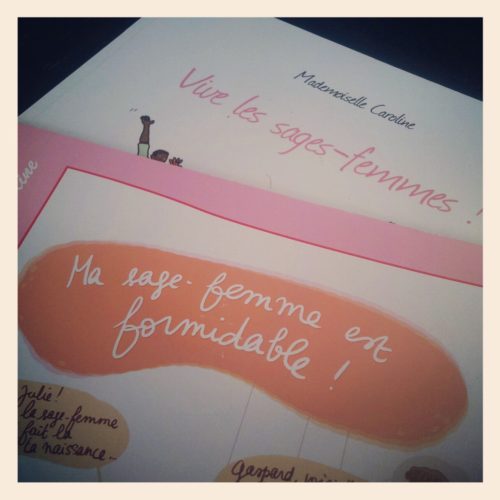 Mademoiselle Caroline
Vive les sages-femmes !
Ma sage-femme est
formidable !
Julie!
la sage-femme
fait la
la naissance..
Gaspard,